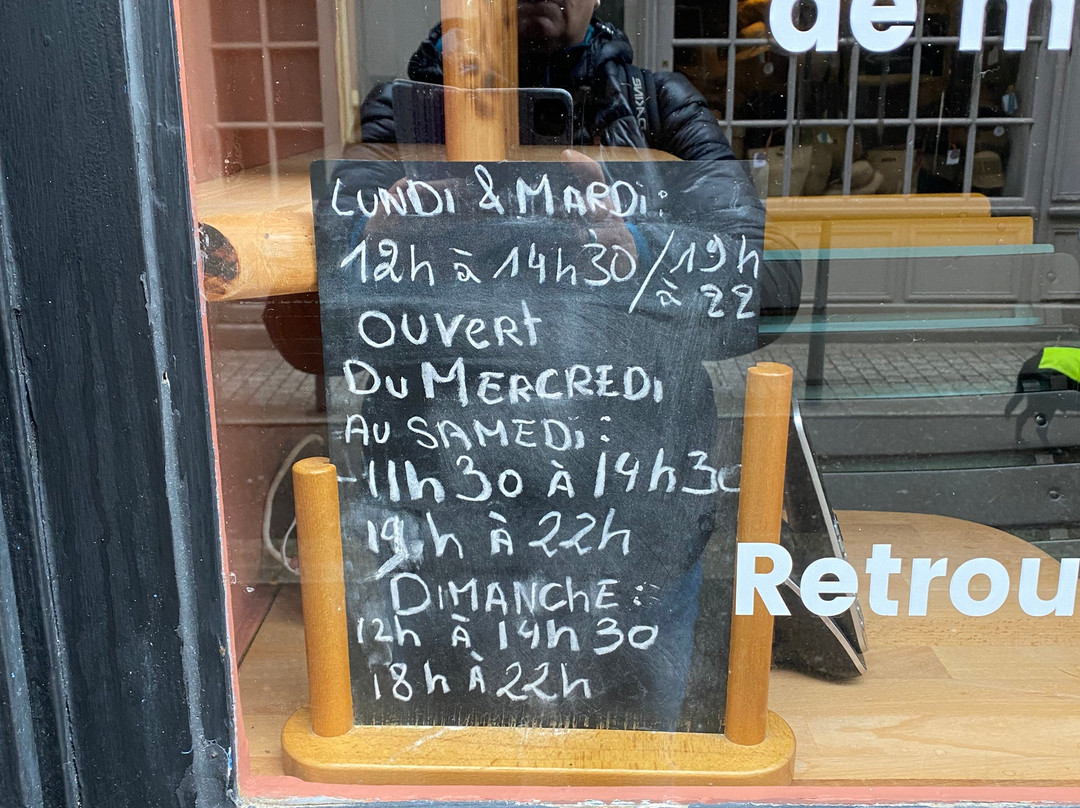 de m
DAKINE
LUNDi & MARDi:
12h à 14h30/19h
à 22
OUVert
Du MERCREDi
AU SAMEDi:
-11h30 À 14h30
19h À 22h
DiMANChE:
12h À 14h30
18h À 22h
Retrou